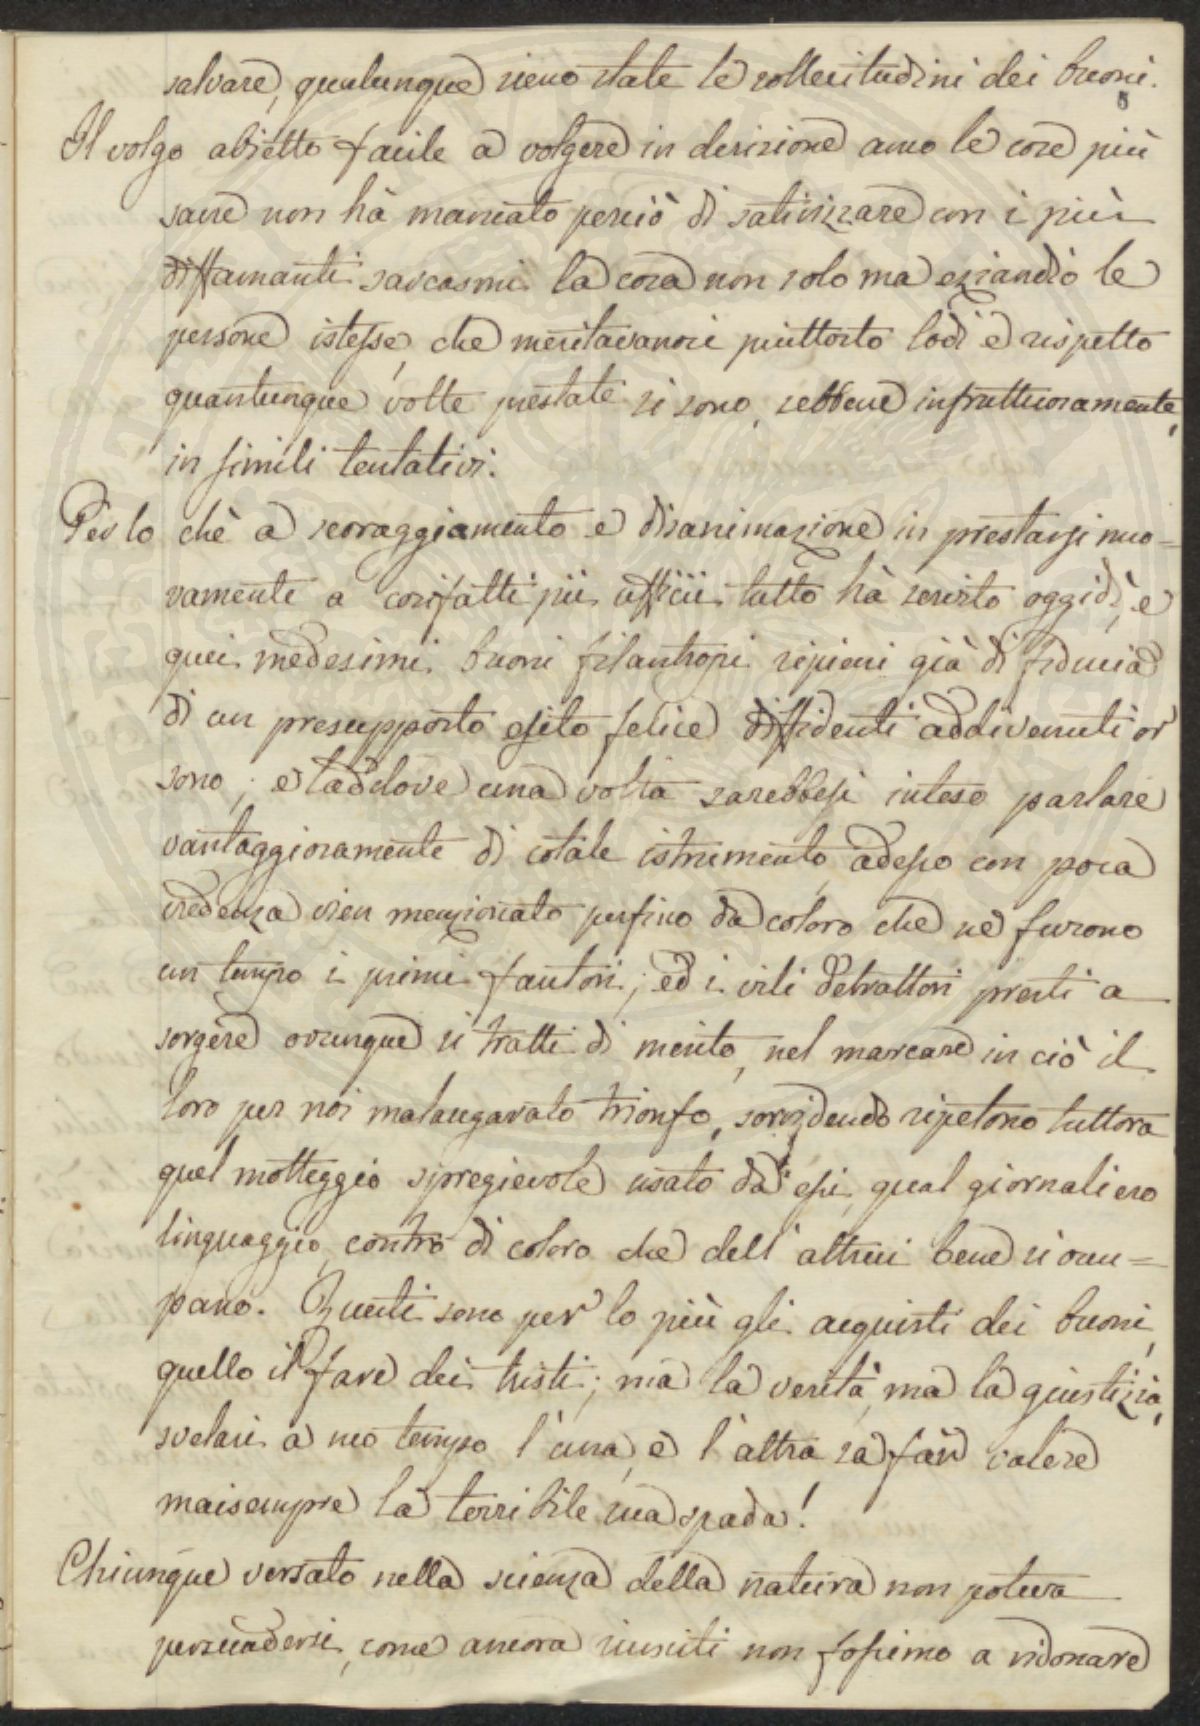 salvare, qualunque sieno state le sollecitudini dei buoni.
Il volgo abjetto facile a volgere in derisione anco le cose più
sacre non hà mancato perciò di satirizzare con i più
diffamanti sarcasmi la cosa non solo ma eziandio le
persone istesse, che meritavansi piuttosto lodi e rispetto
quantunque volte prestate si sono, sebbene infruttuosamente,
in simili tentativi.
Per lo chè a scoraggiamento e disanimazione in prestarsi nuo=
vamente a cosifatti pii ufficii tutto hà servito oggidì, e
quei medesimi buoni filantropi ripieni già di fiducia
di un presupposto esito felice diffidenti addivenuti or
sono; e laddove una volta sarebbesi inteso parlare
vantaggiosamente di cotale istrumento, adesso con poca
credenza vien menzionato perfino da coloro che ne furono
un tempo i primi fautori; ed i vili detrattori presti a
sorgere ovunque si tratti di merito, nel marcare in ciò il
loro per noi malaugurato trionfo, sorridendo ripetono tuttora
quel motteggio spregievole usato da essi, qual giornaliero
linguaggio, contro di coloro che dell'altrui bene si occu=
pano. Questi sono per lo più gli acquisti dei buoni,
quello il fare dei tristi; ma la verità, ma la giustizia,
svelasi a suo tempo l'una, e l'altra sa far valere
maisempre la terribile sua spada!
Chiunque versato nella scienza della natura non poteva
persuadersi, come ancora riusciti non fossimo a ridonare